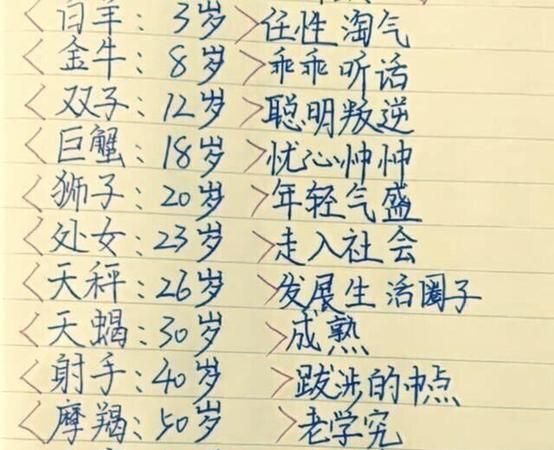 <白羊: 3岁>任性 淘气
<金牛: 8岁>乖乖听话
<双子: 12岁>聪明叛逆
<巨蟹: 18岁>忧心忡忡
<狮子: 20岁>年轻气盛
<处女: 23岁>走入社会
<天秤: 26岁>发展生活圈子
<天蝎: 30岁>成熟
<射手: 40岁>跋涉的中点
<摩羯: 50岁>老学究